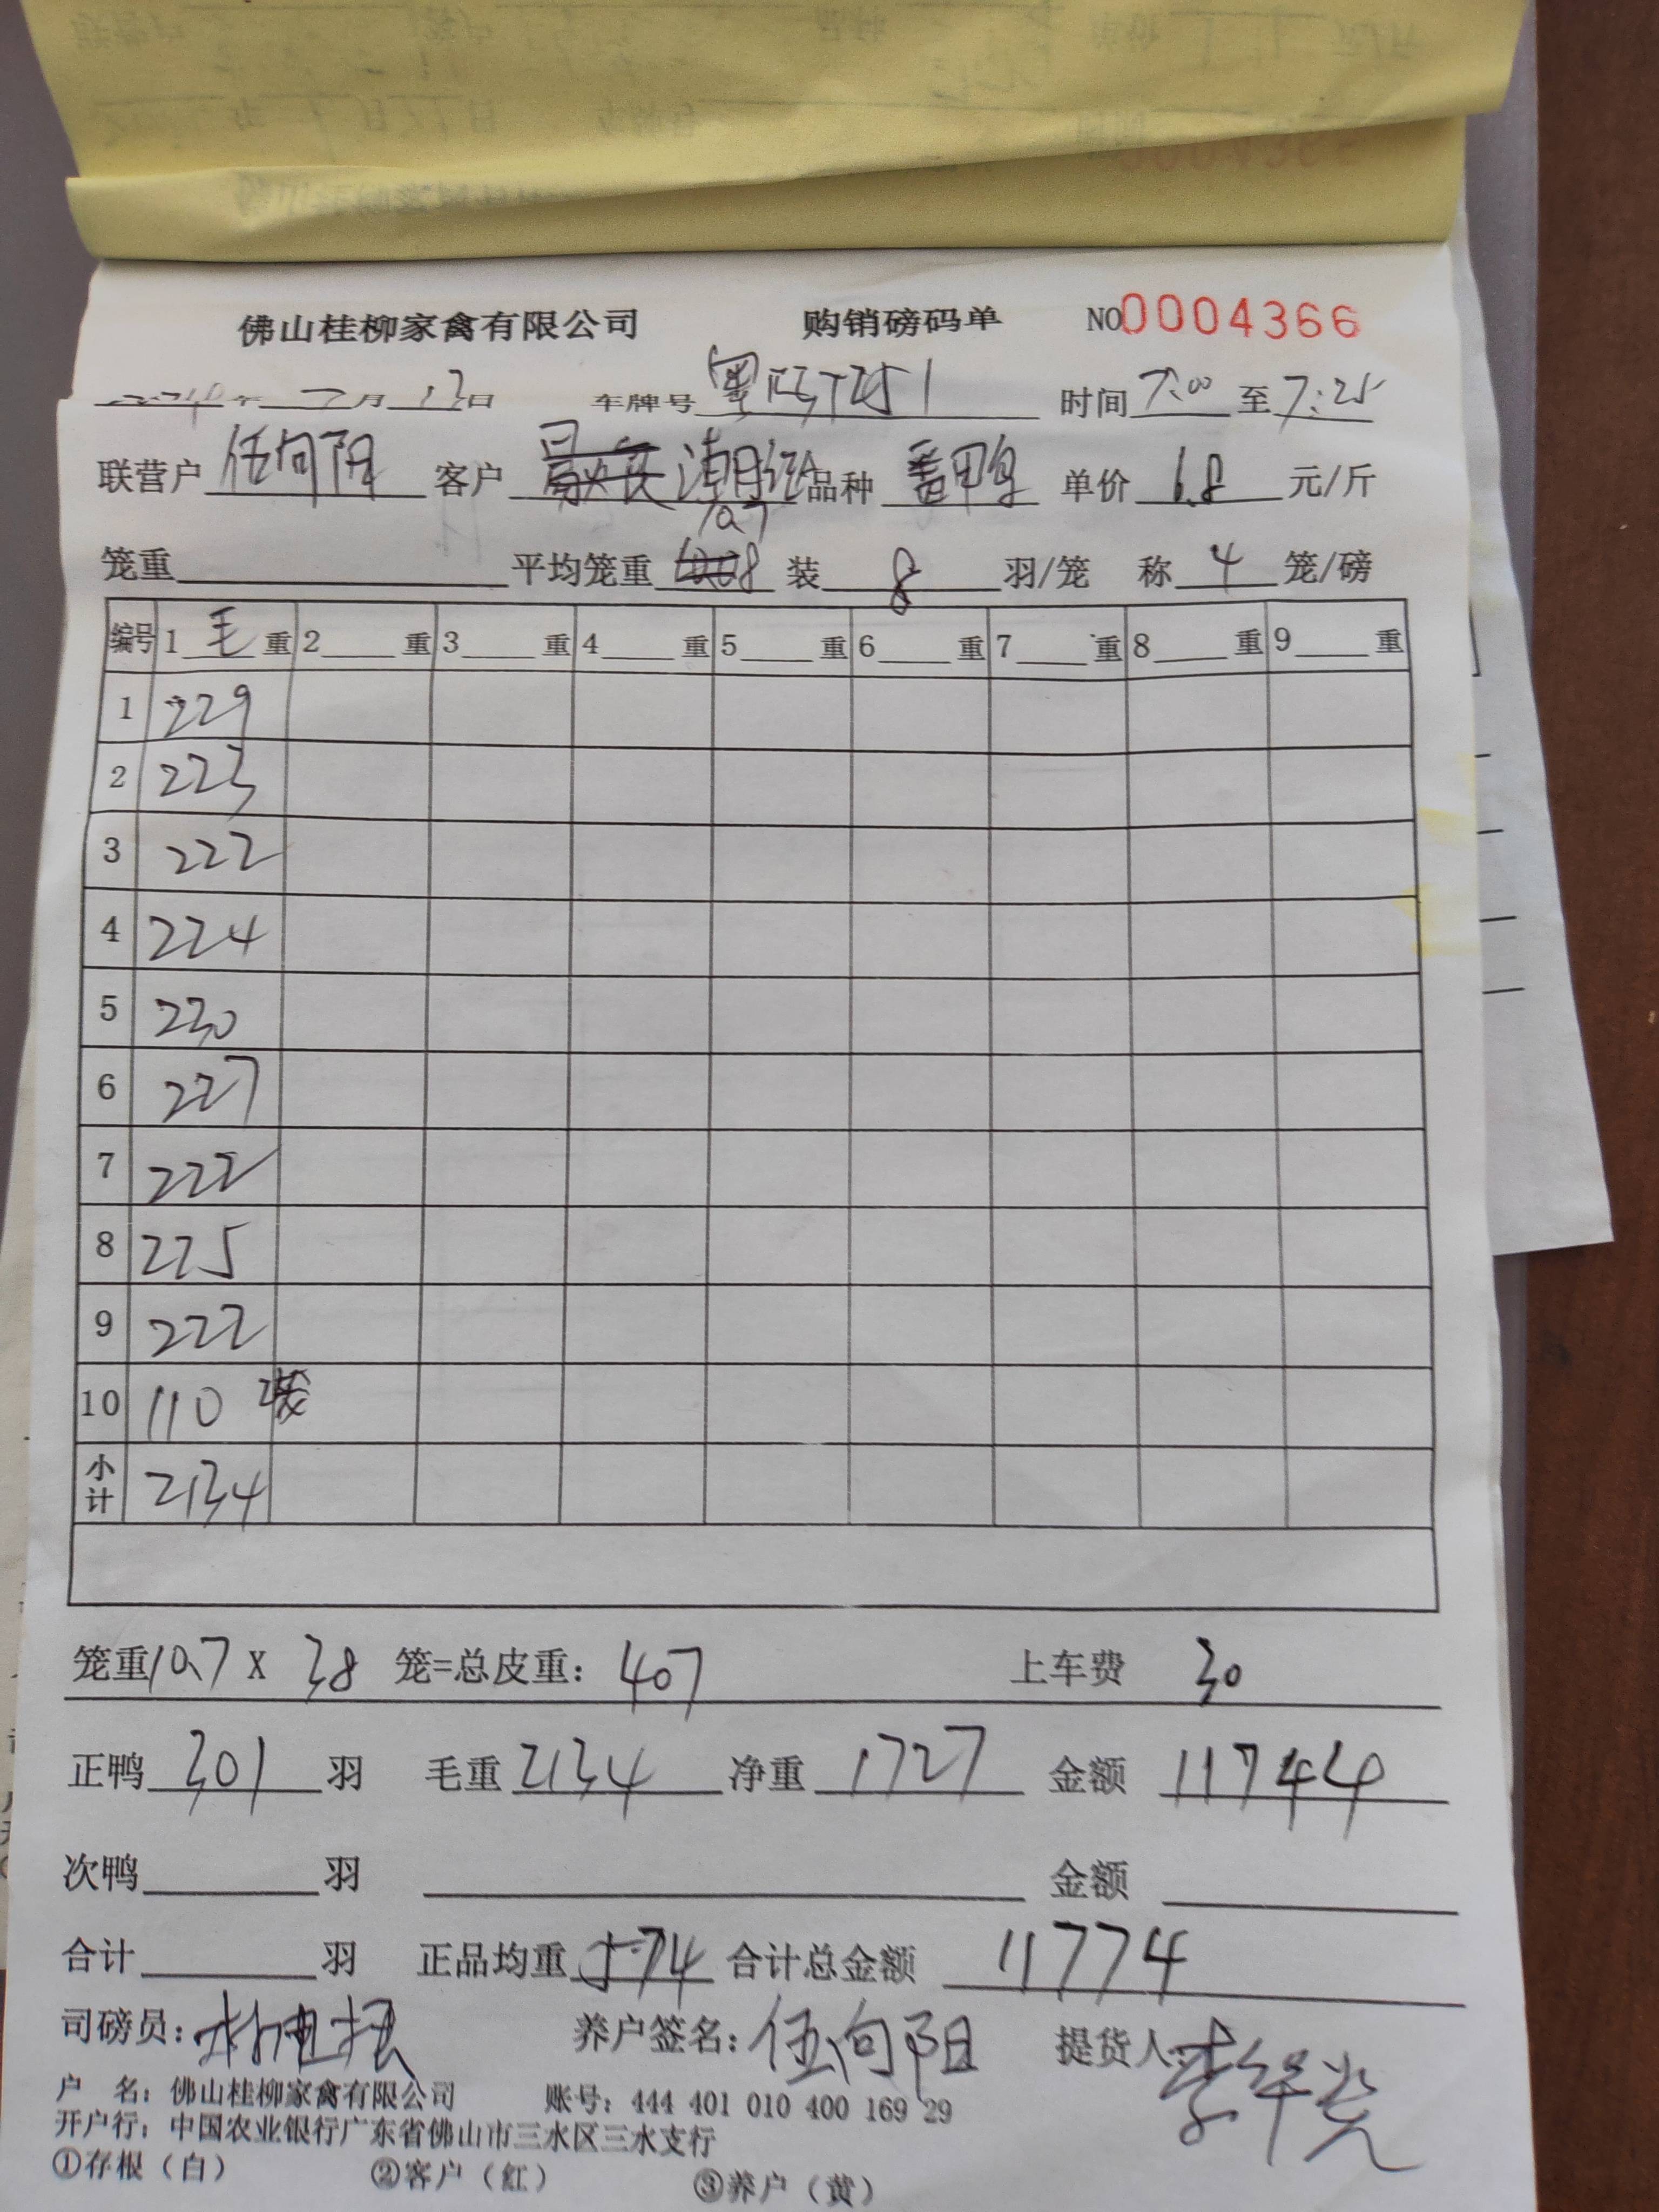 佛山桂柳家禽有限公司 购销磅码单 NO0004366
年 月 13日 车牌号 时间7:00至7:25
联营户 伍向阳 客户 潮 品种 番甲鸟 单价 6.8 元/斤
10.7
笼重 平均笼重 装 8 羽/笼 称 4 笼/磅
编号 1 毛 重 2 重 3 重 4 重 5 重 6 重 7 重 8 重 9 重
1 229
2 223
3 222
4 224
5 230
6 227
7 222
8 225
9 222
10 110
小计 2134
笼重10.7 X 38 笼=总皮重: 407 上车费 30
正鸭 301 羽 毛重 2134 净重 1727 金额 11744
次鸭 羽 金额
合计 羽 正品均重 5.74 合计总金额 11774
司磅员: 养户签名: 伍向阳 提货人:
户 名: 佛山桂柳家禽有限公司 账号: 444 401 010 400 169 29
开户行: 中国农业银行广东省佛山市三水区三水支行
①存根(白) ②客户(红) ③养户(黄)